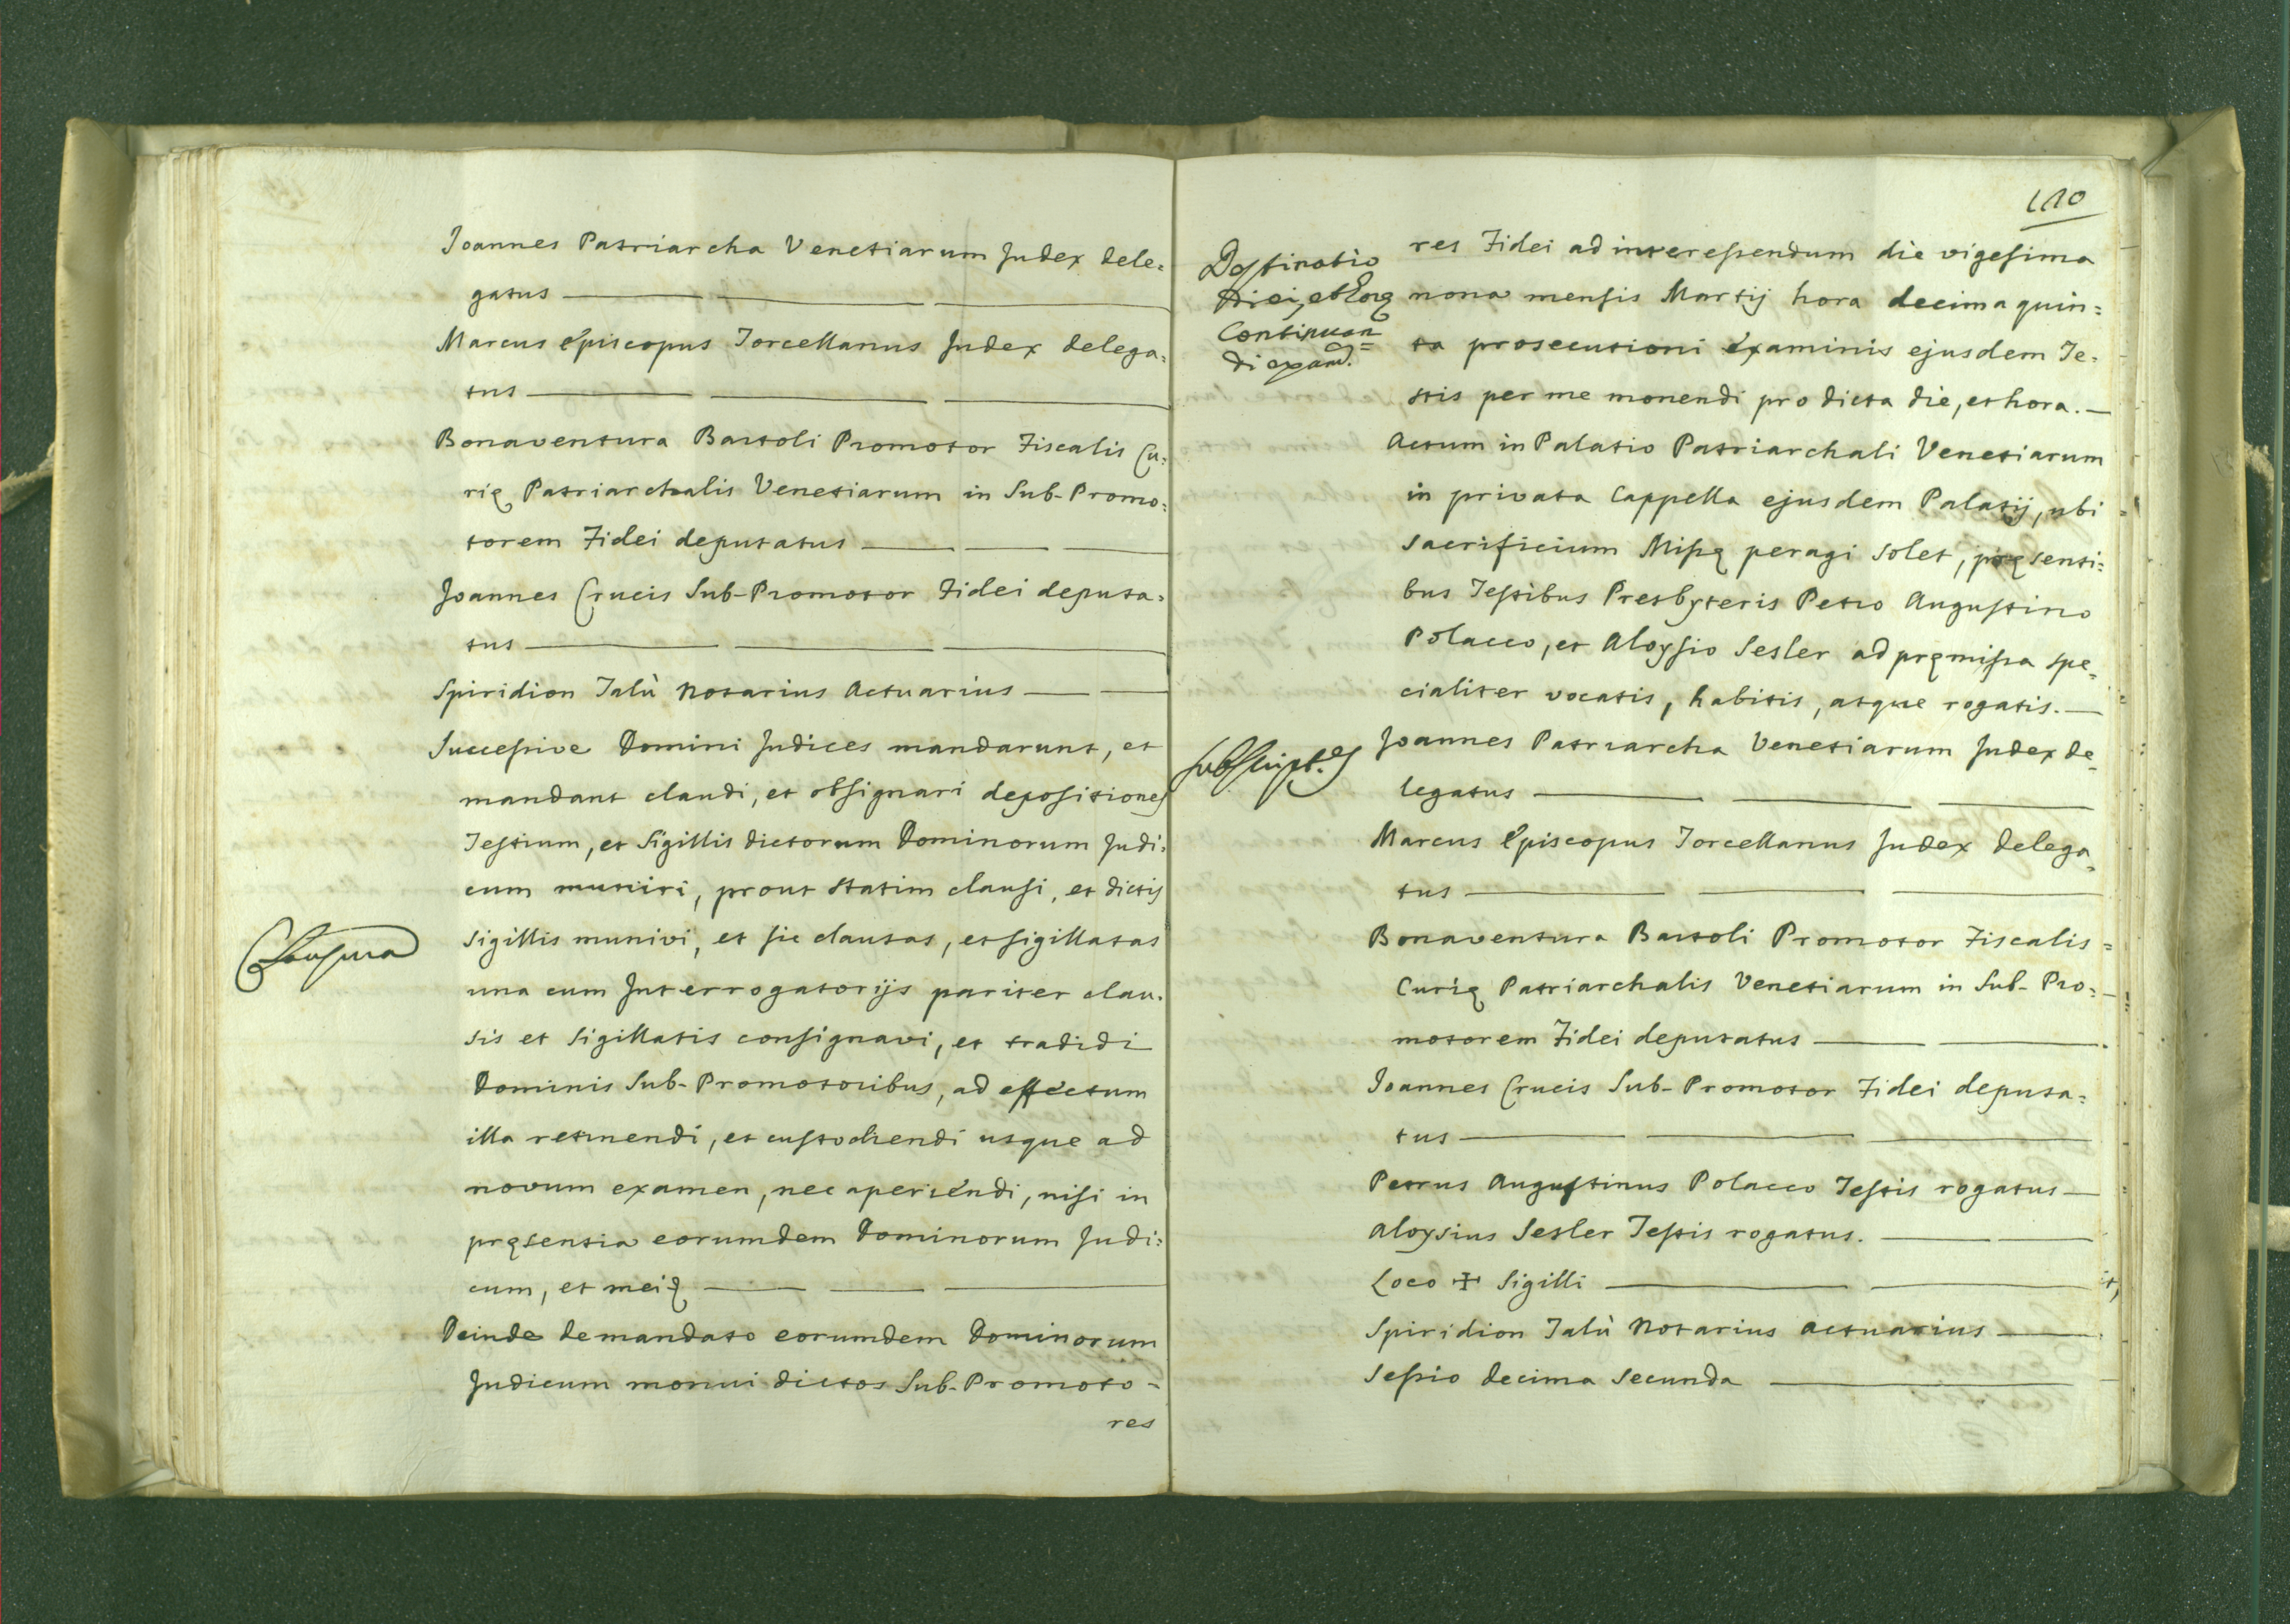 Joannes Patriarcha Venetiarum Judex dele=
gatus
Marcus Episcopus Torcellanus Judex delega=
tus
Bonaventura Bartoli Promotor Fiscalis Cu=
rię Patriarchalis Venetiarum in Sub-Promo=
torem Fidei deputatus
Joannes Crucis Sub-Promotor Fidei deputa=
tus
Spiridion Talù Notarius Actuarius
Successive Domini Judices mandarunt, et
mandant claudi, et obsignari depositiones
Testium, et Sigillis dictorum Dominorum Judi=
cum muniri, prout statim clausi, et dictis
Clausura
sigillis munivi, et sic clausas, et sigillatas
una cum Interrogatorijs pariter clau=
sis et sigillatis consignavi, et tradidi
Dominis Sub-Promotoribus, ad effectum
illa retinendi, et custodiendi usque ad
novum examen, nec aperiendi, nisi in
pręsentia eorumdem Dominorum Judi=
cum, et mei
Deinde de mandato eorumdem Dominorum
Judicum monui dictos Sub-Promoto-
res
110
Destinatio
Diei, et Horę
Continuan=
di exam.
res Fidei ad interessendum die vigesima
nona mensis Martij hora decima quin=
ta prosecutioni examinis ejusdem Te=
stis per me monendi pro dicta die, et hora.
Actum in Palatio Patriarchali Venetiarum
in privata Cappella ejusdem Palatij, ubi
sacrificium Missę peragi solet, pręsenti=
bus Testibus Presbyteris Petro Augustino
Polacco, et Aloysio Sesler ad pręmissa spe=
cialiter vocatis, habitis, atque rogatis.
Subscript.es
Joannes Patriarcha Venetiarum Judex de=
legatus
Marcus Episcopus Torcellanus Judex delega=
tus
Bonaventura Bartoli Promotor Fiscalis
Curię Patriarchalis Venetiarum in Sub-Pro=
motorem Fidei deputatus
Joannes Crucis Sub-Promotor Fidei deputa=
tus
Petrus Augustinus Polacco Testis rogatus
Aloysius Sesler Testis rogatus.
Loco ✠ Sigilli
Spiridion Talù Notarius Actuarius
Sessio decima secunda